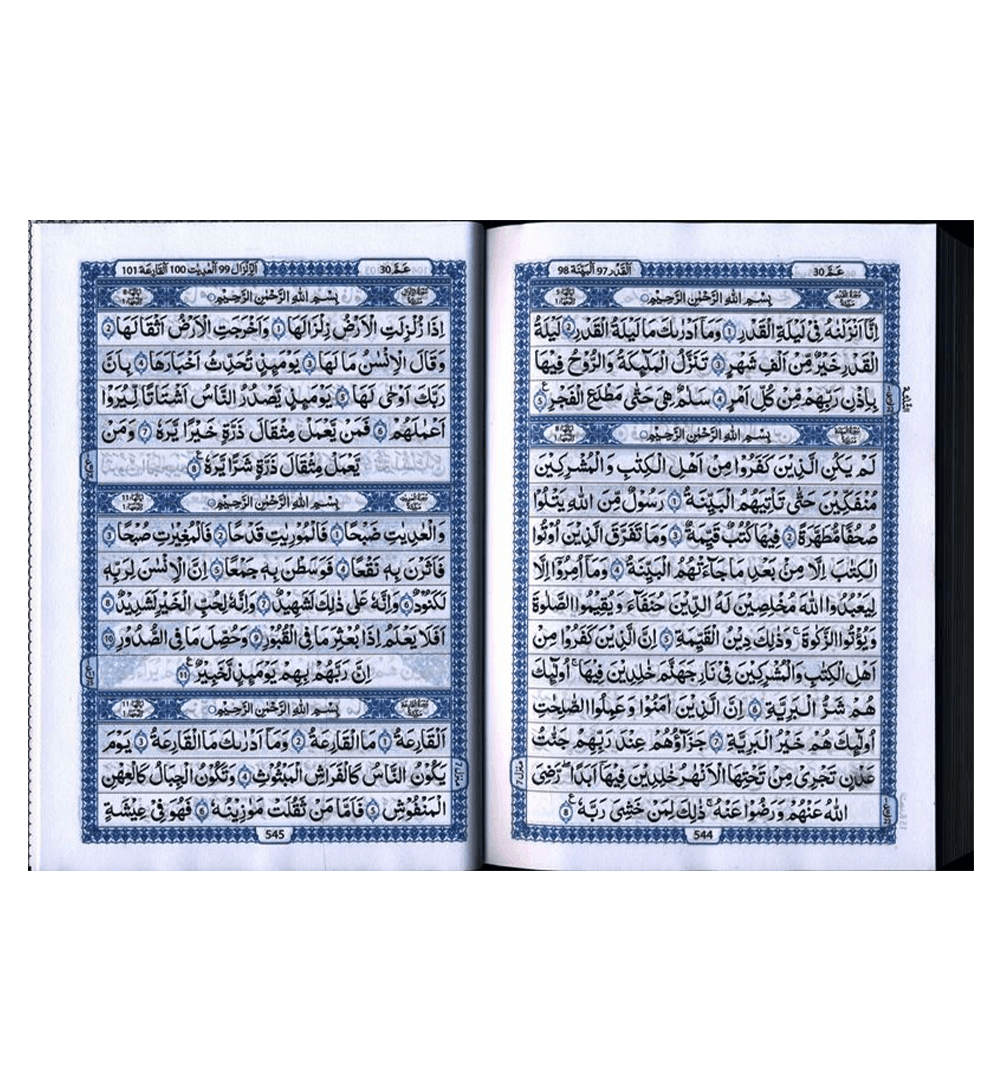 اَلْقَدْر 97 اَلْبَيِّنَة 98
عَمَّ 30
بِسْمِ اللّٰهِ الرَّحْمٰنِ الرَّحِيْمِ
اِنَّاۤ اَنْزَلْنٰهُ فِيْ لَيْلَةِ الْقَدْرِ ۝1 وَمَاۤ اَدْرٰىكَ مَا لَيْلَةُ الْقَدْرِ ۝2 لَيْلَةُ
الْقَدْرِ خَيْرٌ مِّنْ اَلْفِ شَهْرٍ ۝3 تَنَزَّلُ الْمَلٰٓئِكَةُ وَالرُّوْحُ فِيْهَا
بِاِذْنِ رَبِّهِمْ مِّنْ كُلِّ اَمْرٍ ۝4 سَلٰمٌ هِيَ حَتّٰى مَطْلَعِ الْفَجْرِ ۝5
بِسْمِ اللّٰهِ الرَّحْمٰنِ الرَّحِيْمِ
لَمْ يَكُنِ الَّذِيْنَ كَفَرُوْا مِنْ اَهْلِ الْكِتٰبِ وَالْمُشْرِكِيْنَ
مُنْفَكِّيْنَ حَتّٰى تَاْتِيَهُمُ الْبَيِّنَةُ ۝1 رَسُوْلٌ مِّنَ اللّٰهِ يَتْلُوْا
صُحُفًا مُّطَهَّرَةً ۝2 فِيْهَا كُتُبٌ قَيِّمَةٌ ۝3 وَمَا تَفَرَّقَ الَّذِيْنَ اُوْتُوا
الْكِتٰبَ اِلَّا مِنْۢ بَعْدِ مَا جَآءَتْهُمُ الْبَيِّنَةُ ۝4 وَمَاۤ اُمِرُوْۤا اِلَّا
لِيَعْبُدُوا اللّٰهَ مُخْلِصِيْنَ لَهُ الدِّيْنَ حُنَفَآءَ وَيُقِيْمُوا الصَّلٰوةَ
وَيُؤْتُوا الزَّكٰوةَ وَذٰلِكَ دِيْنُ الْقَيِّمَةِ ۝5 اِنَّ الَّذِيْنَ كَفَرُوْا مِنْ
اَهْلِ الْكِتٰبِ وَالْمُشْرِكِيْنَ فِيْ نَارِ جَهَنَّمَ خٰلِدِيْنَ فِيْهَا اُولٰٓئِكَ
هُمْ شَرُّ الْبَرِيَّةِ ۝6 اِنَّ الَّذِيْنَ اٰمَنُوْا وَعَمِلُوا الصّٰلِحٰتِ
اُولٰٓئِكَ هُمْ خَيْرُ الْبَرِيَّةِ ۝7 جَزَآؤُهُمْ عِنْدَ رَبِّهِمْ جَنّٰتُ
عَدْنٍ تَجْرِيْ مِنْ تَحْتِهَا الْاَنْهٰرُ خٰلِدِيْنَ فِيْهَاۤ اَبَدًا رَضِيَ
اللّٰهُ عَنْهُمْ وَرَضُوْا عَنْهُ ذٰلِكَ لِمَنْ خَشِيَ رَبَّهٗ ۝8
منزل 7
544
اَلزِّلْزَال 99 اَلْعٰدِيٰت 100 اَلْقَارِعَة 101
عَمَّ 30
بِسْمِ اللّٰهِ الرَّحْمٰنِ الرَّحِيْمِ
اِذَا زُلْزِلَتِ الْاَرْضُ زِلْزَالَهَا ۝1 وَاَخْرَجَتِ الْاَرْضُ اَثْقَالَهَا ۝2
وَقَالَ الْاِنْسٰنُ مَا لَهَا ۝3 يَوْمَئِذٍ تُحَدِّثُ اَخْبَارَهَا ۝4 بِاَنَّ
رَبَّكَ اَوْحٰى لَهَا ۝5 يَوْمَئِذٍ يَّصْدُرُ النَّاسُ اَشْتَاتًا لِّيُرَوْا
اَعْمٰلَهُمْ ۝6 فَمَنْ يَّعْمَلْ مِثْقَالَ ذَرَّةٍ خَيْرًا يَّرَهٗ ۝7 وَمَنْ
يَّعْمَلْ مِثْقَالَ ذَرَّةٍ شَرًّا يَّرَهٗ ۝8
بِسْمِ اللّٰهِ الرَّحْمٰنِ الرَّحِيْمِ
وَالْعٰدِيٰتِ ضَبْحًا ۝1 فَالْمُوْرِيٰتِ قَدْحًا ۝2 فَالْمُغِيْرٰتِ صُبْحًا ۝3
فَاَثَرْنَ بِهٖ نَقْعًا ۝4 فَوَسَطْنَ بِهٖ جَمْعًا ۝5 اِنَّ الْاِنْسٰنَ لِرَبِّهٖ
لَكَنُوْدٌ ۝6 وَاِنَّهٗ عَلٰى ذٰلِكَ لَشَهِيْدٌ ۝7 وَاِنَّهٗ لِحُبِّ الْخَيْرِ لَشَدِيْدٌ ۝8
اَفَلَا يَعْلَمُ اِذَا بُعْثِرَ مَا فِي الْقُبُوْرِ ۝9 وَحُصِّلَ مَا فِي الصُّدُوْرِ ۝10
اِنَّ رَبَّهُمْ بِهِمْ يَوْمَئِذٍ لَّخَبِيْرٌ ۝11
بِسْمِ اللّٰهِ الرَّحْمٰنِ الرَّحِيْمِ
اَلْقَارِعَةُ ۝1 مَا الْقَارِعَةُ ۝2 وَمَاۤ اَدْرٰىكَ مَا الْقَارِعَةُ ۝3 يَوْمَ
يَكُوْنُ النَّاسُ كَالْفَرَاشِ الْمَبْثُوْثِ ۝4 وَتَكُوْنُ الْجِبَالُ كَالْعِهْنِ
الْمَنْفُوْشِ ۝5 فَاَمَّا مَنْ ثَقُلَتْ مَوٰزِيْنُهٗ ۝6 فَهُوَ فِيْ عِيْشَةٍ
منزل 7
545